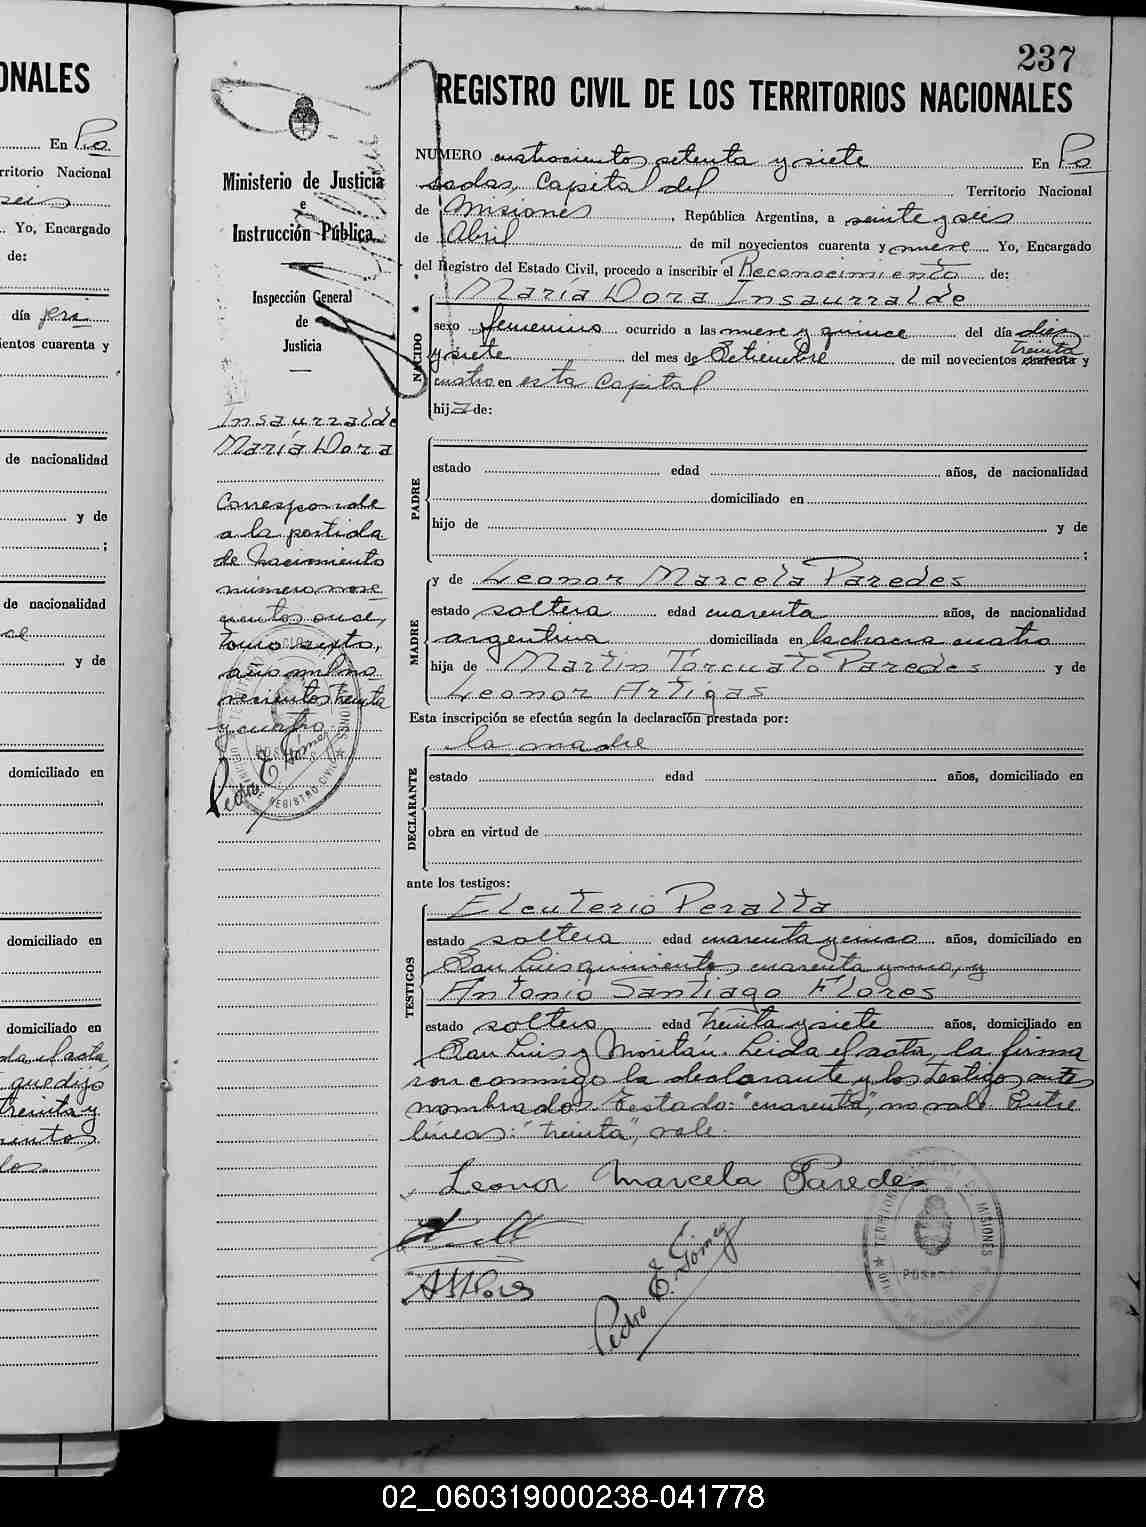 237
REGISTRO CIVIL DE LOS TERRITORIOS NACIONALES
NUMERO cuatrocientos setenta y siete En Po
sadas, Capital del Territorio Nacional
de Misiones, República Argentina, a veinte y seis
de Abril de mil novecientos cuarenta y nueve Yo, Encargado
del Registro del Estado Civil, procedo a inscribir el Reconocimiento de:
María Dora Insaurralde
NACIDO
sexo femenino ocurrido a las nueve y quince del día diez
y siete del mes de Setiembre de mil novecientos cuarenta treinta y
cuatro en esta Capital
hija de:
PADRE
estado edad años, de nacionalidad
domiciliado en
hijo de y de
;
MADRE
y de Leonor Marcela Paredes
estado soltera edad cuarenta años, de nacionalidad
argentina domiciliada en la chacra cuatro
hija de Martin Torcuato Paredes y de
Leonor Artigas
Esta inscripción se efectúa según la declaración prestada por:
DECLARANTE
la madre
estado edad años, domiciliado en
obra en virtud de
ante los testigos:
TESTIGOS
Eleuterio Peralta
estado soltero edad cuarenta y cinco años, domiciliado en
San Luis quinientos cuarenta y uno, y
Antonio Santiago Flores
estado soltero edad treinta y siete años, domiciliado en
San Luis y Moritán. Leida el acta, la firma
ron conmigo la declarante y los testigos antes
nombrados. Testado: "cuarenta", no vale. Entre
líneas: "treinta", vale.
Leonor Marcela Paredes
Pedro E. Gómez
TERRITORIO NACIONAL DE MISIONES
POSADAS
Ministerio de Justicia
e
Instrucción Pública
Inspección General
de
Justicia
Insaurralde
María Dora
Corresponde
a la partida
de Nacimiento
número nove
cientos once,
tomo sexto,
año mil no
vecientos treinta
y cuatro.
Pedro E. Gómez
REGISTRO CIVIL
MISIONES
ONALES
En Po
rritorio Nacional
seis
Yo, Encargado
de:
día pri
ientos cuarenta y
de nacionalidad
y de
;
de nacionalidad
ce
y de
domiciliado en
domiciliado en
domiciliado en
da el acta
que dijo
treinta y
ientos
los.
02_060319000238-041778